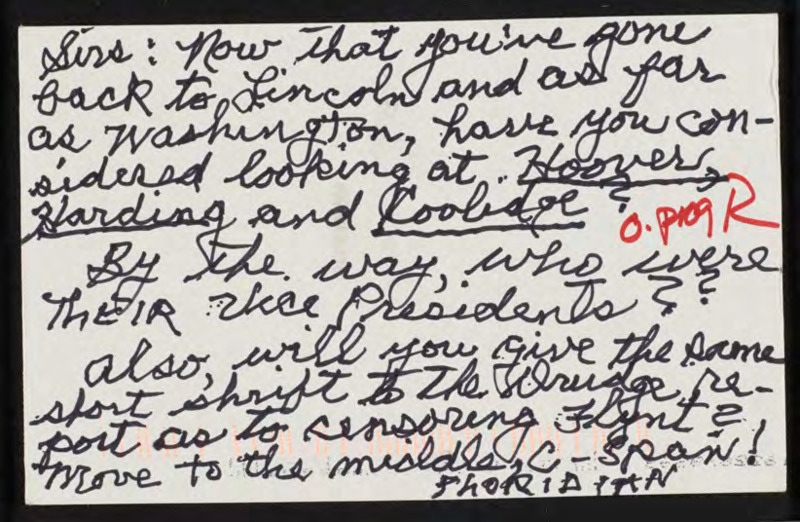 Sirs: Now that you've gone
back to Lincoln and as far
as Washington, have you con-
sidered looking at Hoover,
Harding and Coolidge?
O. prog R
By the way, who were
THEIR Vice Presidents??
Also, will you give the same
short shrift to the Drudge re-
port as to censoring Flynt?
Move to the middle, C-Span!
FLORIDIAN